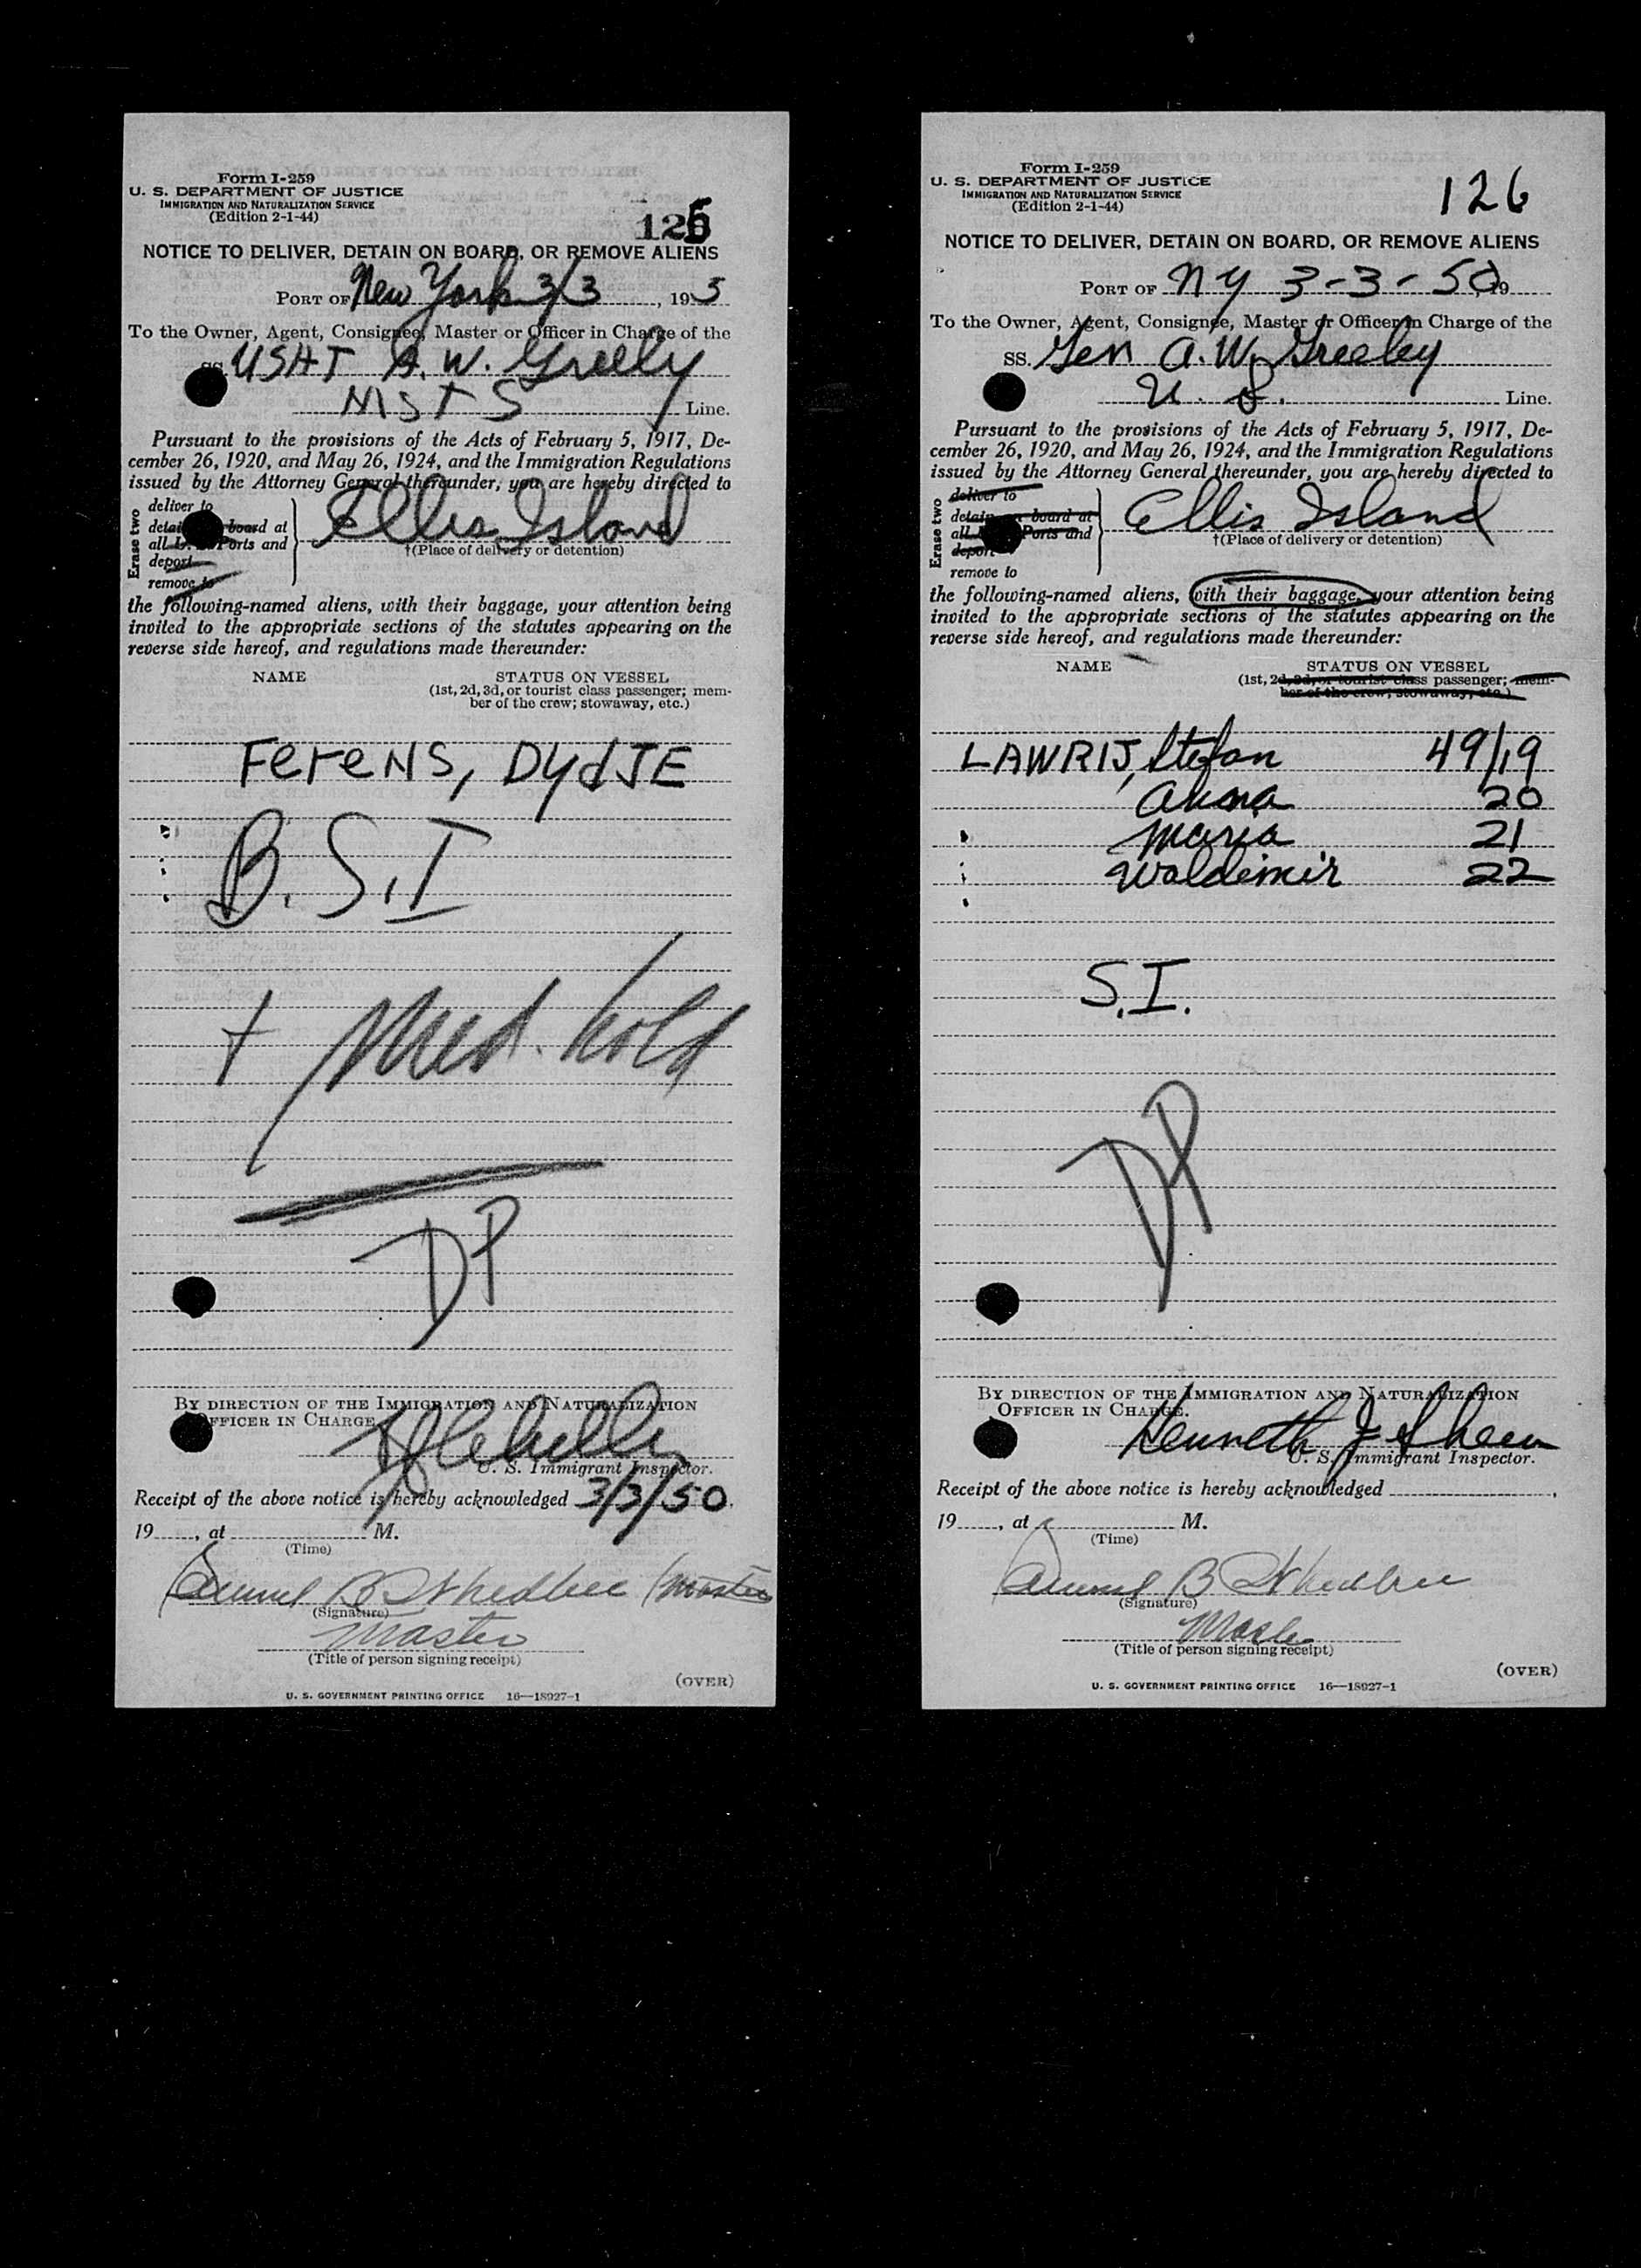 Form I-259
U. S. DEPARTMENT OF JUSTICE
IMMIGRATION AND NATURALIZATION SERVICE
(Edition 2-1-44)
125
NOTICE TO DELIVER, DETAIN ON BOARD, OR REMOVE ALIENS
PORT OF New York 3/3, 195
To the Owner, Agent, Consignee, Master or Officer in Charge of the
SS. USAT A. W. Greely
MSTS Line.
Pursuant to the provisions of the Acts of February 5, 1917, De-
cember 26, 1920, and May 26, 1924, and the Immigration Regulations
issued by the Attorney General thereunder, you are hereby directed to
Erase two
deliver to
board at
Ports and
deport
remove to
Ellis Island
†(Place of delivery or detention)
the following-named aliens, with their baggage, your attention being
invited to the appropriate sections of the statutes appearing on the
reverse side hereof, and regulations made thereunder:
NAME STATUS ON VESSEL
(1st, 2d, 3d, or tourist class passenger; mem-
ber of the crew; stowaway, etc.)
FereNS, DydJE
B.S.I
+ Med. hold
DP
BY DIRECTION OF THE IMMIGRATION AND NATURALIZATION
OFFICER IN CHARGE.
U. S. Immigrant Inspector.
Receipt of the above notice is hereby acknowledged 3/3/50.
19......, at M.
(Time)
Samuel B (Master
(Signature)
Master
(Title of person signing receipt)
(OVER)
U. S. GOVERNMENT PRINTING OFFICE 16—18927-1
Form I-259
U. S. DEPARTMENT OF JUSTICE
IMMIGRATION AND NATURALIZATION SERVICE
(Edition 2-1-44)
126
NOTICE TO DELIVER, DETAIN ON BOARD, OR REMOVE ALIENS
PORT OF NY 3-3-50, 19
To the Owner, Agent, Consignee, Master or Officer in Charge of the
SS. Gen A. W. Greeley
U. S. Line.
Pursuant to the provisions of the Acts of February 5, 1917, De-
cember 26, 1920, and May 26, 1924, and the Immigration Regulations
issued by the Attorney General thereunder, you are hereby directed to
Erase two
deliver to
board at
Ports and
deport
remove to
Ellis Island
†(Place of delivery or detention)
the following-named aliens, with their baggage, your attention being
invited to the appropriate sections of the statutes appearing on the
reverse side hereof, and regulations made thereunder:
NAME STATUS ON VESSEL
(1st, 2d, 3d, or tourist class passenger; mem-
ber of the crew; stowaway, etc.)
LAWRIJ, Stefan 49/19
Anna 20
Maria 21
Waldemir 22
S.I.
DP
BY DIRECTION OF THE IMMIGRATION AND NATURALIZATION
OFFICER IN CHARGE.
Kenneth J
U. S. Immigrant Inspector.
Receipt of the above notice is hereby acknowledged
19......, at M.
(Time)
Samuel B
(Signature)
Master
(Title of person signing receipt)
(OVER)
U. S. GOVERNMENT PRINTING OFFICE 16—18927-1